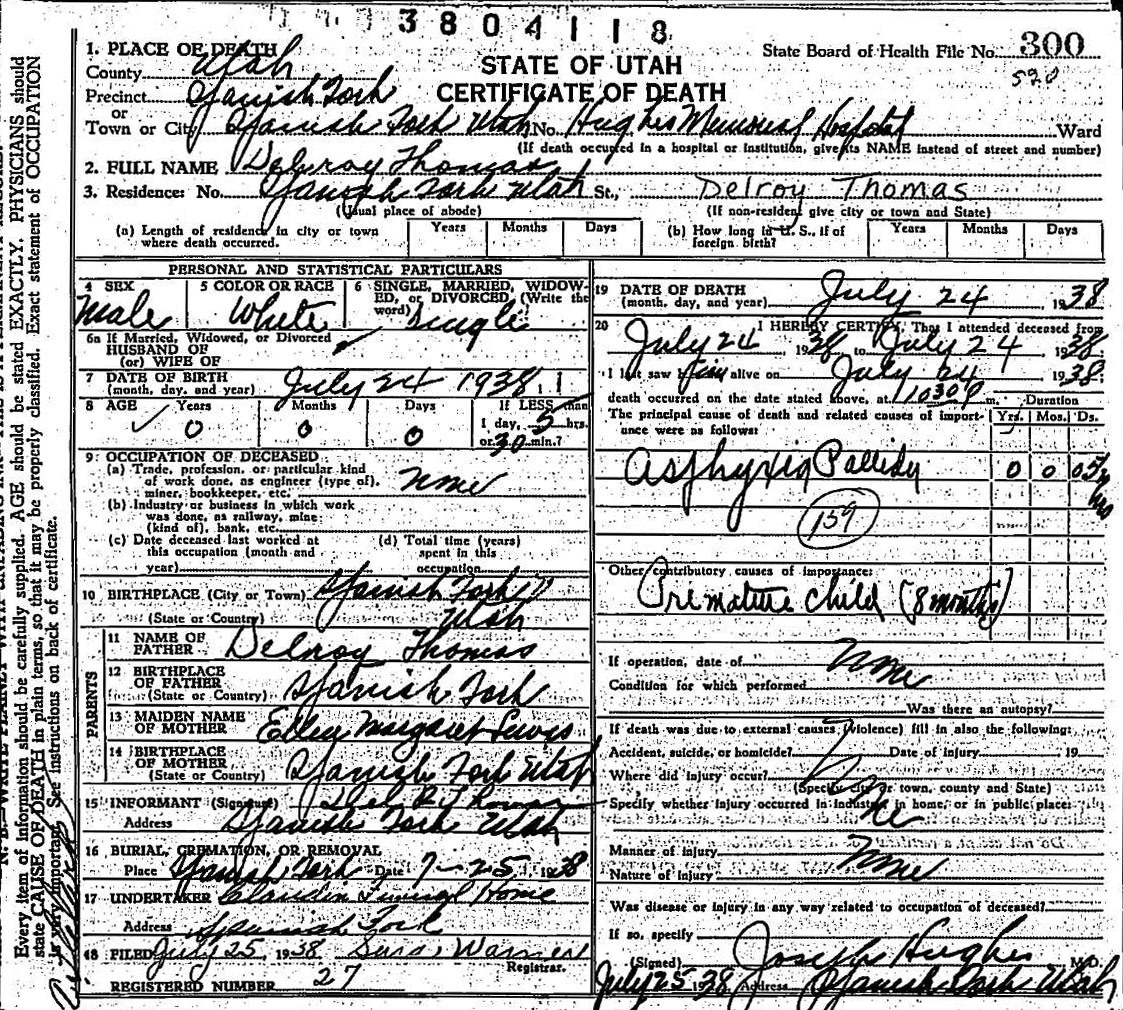 3804118
1. PLACE OF DEATH
State Board of Health File No. 300
County Utah
STATE OF UTAH
520
Precinct Spanish Fork
CERTIFICATE OF DEATH
or
Town or City Spanish Fork Utah No. Hughes Memorial Hospital Ward
(If death occurred in a hospital or institution, give its NAME instead of street and number)
2. FULL NAME Delroy Thomas
3. Residence: No. Spanish Fork Utah St., Delroy Thomas
(Usual place of abode) (If non-resident give city or town and State)
(a) Length of residence in city or town where death occurred. Years Months Days
(b) How long in U. S., if of foreign birth? Years Months Days
PERSONAL AND STATISTICAL PARTICULARS
4 SEX Male
5 COLOR OR RACE White
6 SINGLE, MARRIED, WIDOWED, or DIVORCED, (Write the word) Single
6a If Married, Widowed, or Divorced
HUSBAND OF
(or) WIFE OF
7 DATE OF BIRTH
(month, day, and year) July 24 1938
8 AGE Years Months Days If LESS than
0 0 0 1 day, 5 hrs.
or 30 min.?
9 OCCUPATION OF DECEASED
(a) Trade, profession, or particular kind
of work done, as engineer (type of),
miner, bookkeeper, etc. None
(b) Industry or business in which work
was done, as railway, mine
(kind of), bank, etc.
(c) Date deceased last worked at
this occupation (month and
year)
(d) Total time (years)
spent in this
occupation
10 BIRTHPLACE (City or Town) Spanish Fork
(State or Country) Utah
PARENTS
11 NAME OF
FATHER Delroy Thomas
12 BIRTHPLACE
OF FATHER
(State or Country) Spanish Fork
13 MAIDEN NAME
OF MOTHER Ellen Margaret Lewis
14 BIRTHPLACE
OF MOTHER
(State or Country) Spanish Fork Utah
15 INFORMANT (Signature) Thomas
Address Spanish Fork Utah
16 BURIAL, CREMATION, OR REMOVAL
Place Spanish Fork Date 7-25 1938
17 UNDERTAKER Claudin Funeral Home
Address Spanish Fork
18 FILED July 25, 1938 Warner
Registrar.
REGISTERED NUMBER 27
19 DATE OF DEATH
(month, day, and year) July 24 1938
20 I HEREBY CERTIFY, That I attended deceased from
July 24 1938, to July 24 1938.
I last saw him alive on July 24 1938.
death occurred on the date stated above, at 1030 P m. Duration
The principal cause of death and related causes of importance were as follows: Yrs. Mos. Ds.
Asphyxia Pallida 0 0 0 5½ hrs
159
Other contributory causes of importance:
Premature child (8 months)
If operation, date of None
Condition for which performed
Was there an autopsy?
If death was due to external causes (violence) fill in also the following:
Accident, suicide, or homicide? Date of injury 19
Where did injury occur?
(Specify city or town, county and State)
Specify whether injury occurred in industry, in home, or in public place:
None
Manner of injury None
Nature of injury
Was disease or injury in any way related to occupation of deceased?
If so, specify
(Signed) Joseph Hughes M.D.
July 25 1938 Address Spanish Fork Utah
Every item of information should be carefully supplied. AGE should be stated EXACTLY. PHYSICIANS should
state CAUSE OF DEATH in plain terms, so that it may be properly classified. Exact statement of OCCUPATION
is very important. See instructions on back of certificate.